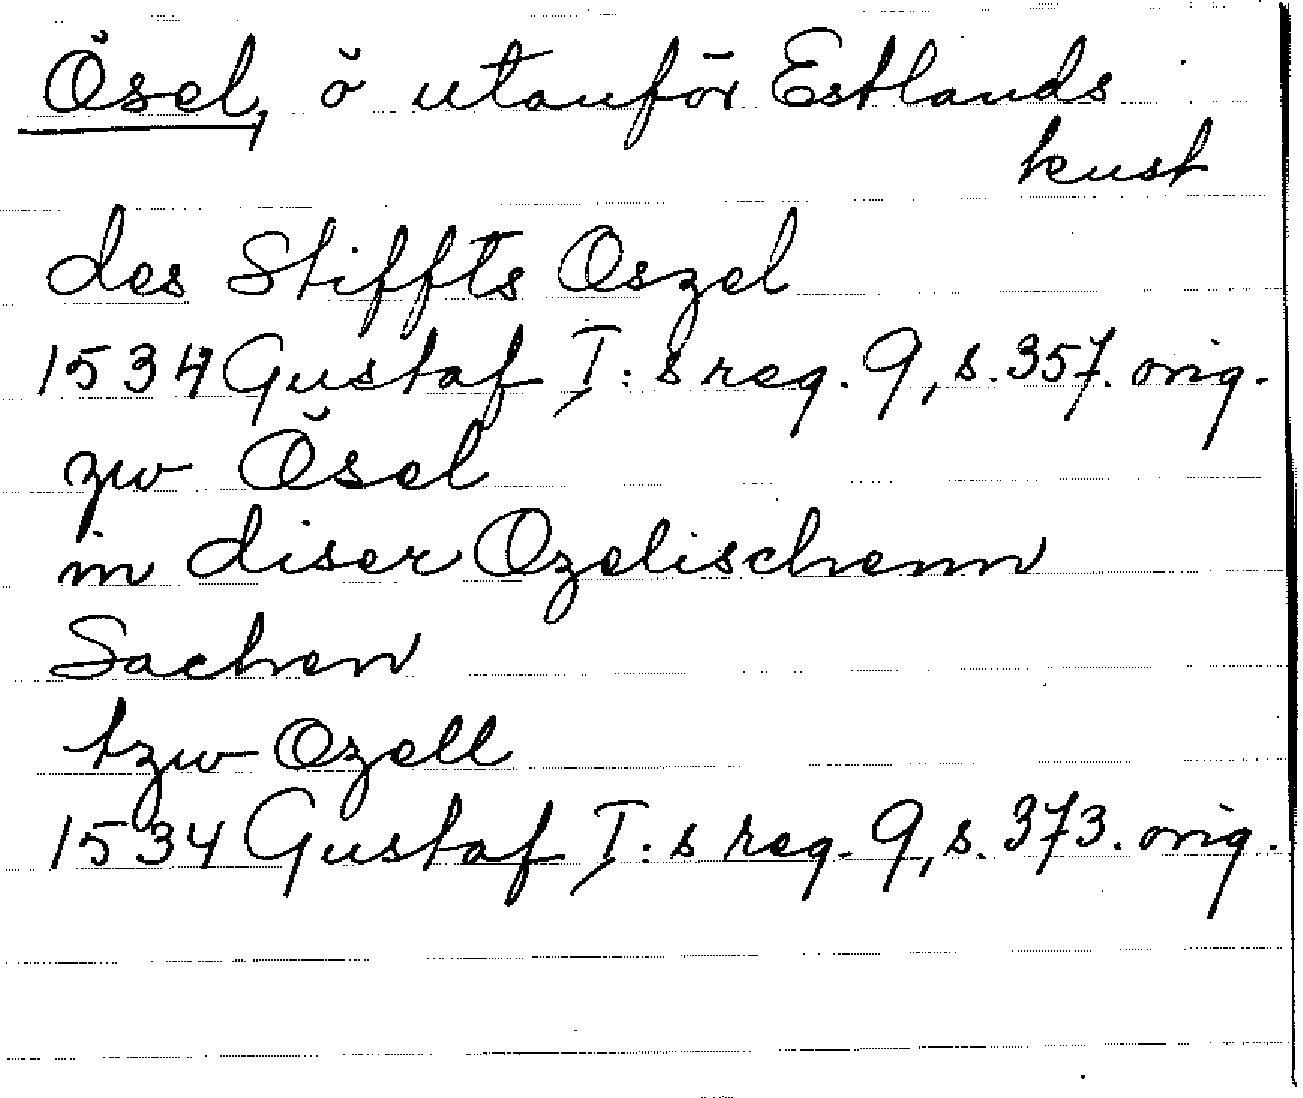 Ösel, ö utanför Estlands
kust
des Stiffts Oszel
1534 Gustaf I:s reg. 9, s. 357. orig.
zw Ösel
in diser Ozelischenn
Sachen
tzw Ozell
1534 Gustaf I:s reg. 9, s. 373. orig.